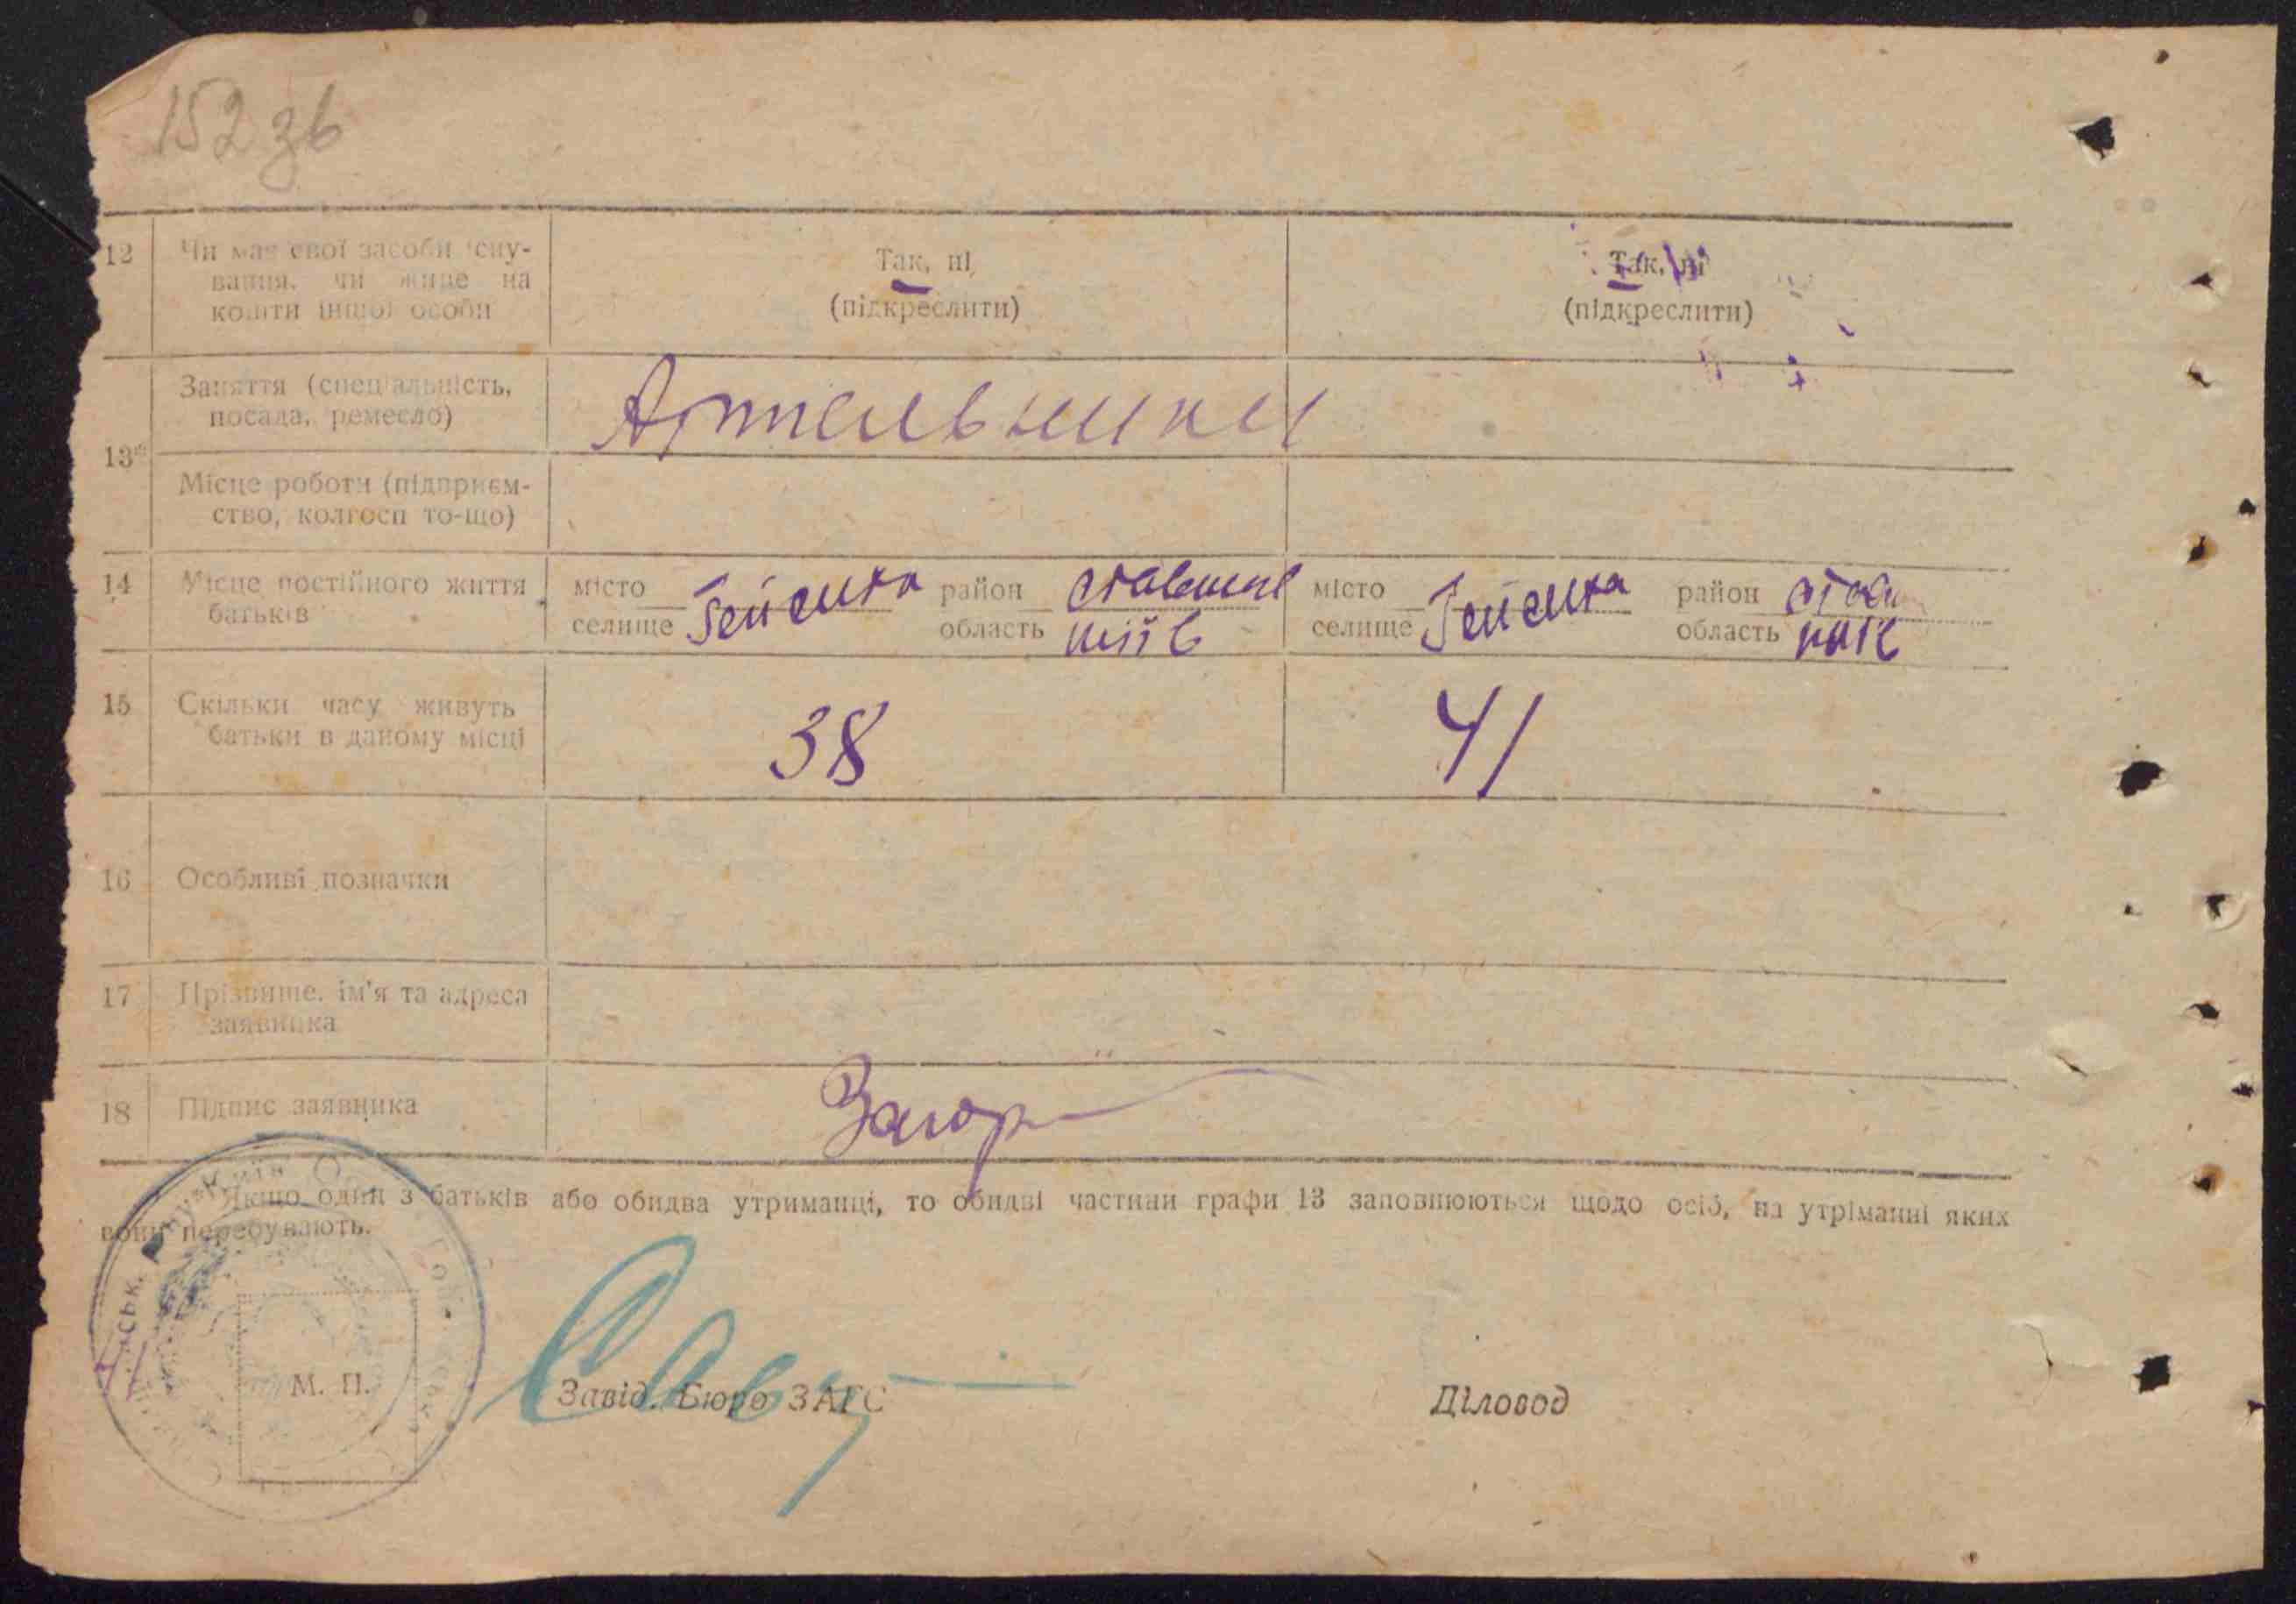 152 зв
12 Чи має свої засоби існу- Так, ні Так, ні
вання, чи живе на (підкреслити) (підкреслити)
кошти іншої особи
13* Заняття (спеціальність, Артельники
посада, ремесло)
Місце роботи (підприєм-
ство, колгосп то-що)
14 Місце постійного життя місто район місто район
батьків селище область київ селище область
15 Скільки часу живуть 38 41
батьки в даному місці
16 Особливі позначки
17 Прізвище, ім'я та адреса
заявника
18 Підпис заявника Загор
Якщо один з батьків або обидва утриманці, то обидві частини графи 13 заповнюються щодо осіб, на утріманні яких
вони перебувають.
М. П.
Завід. Бюро ЗАГС Діловод